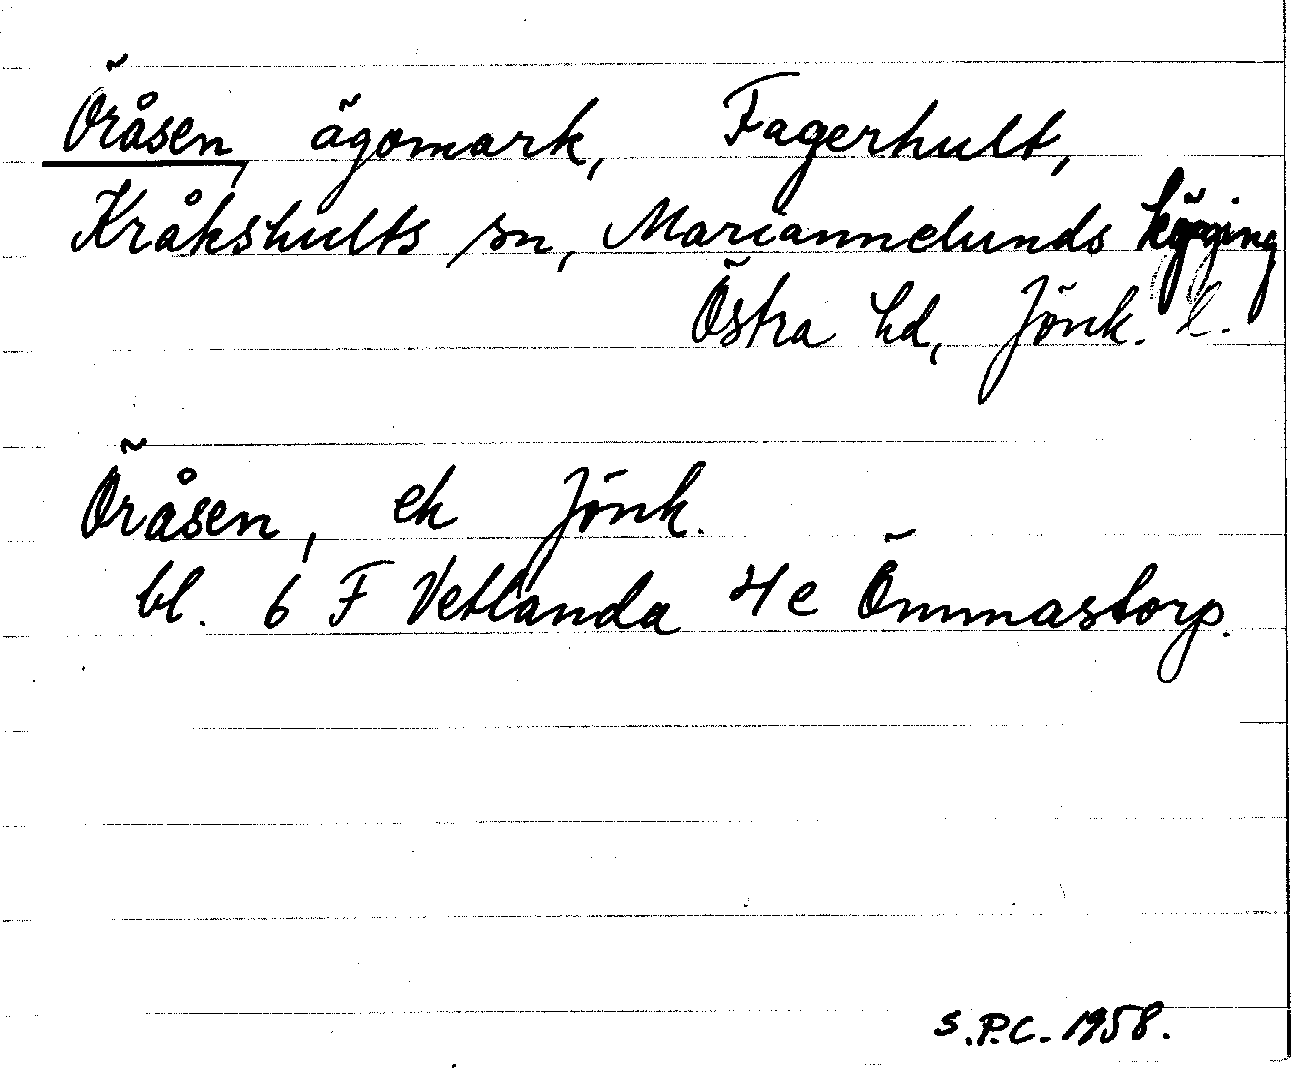 Öråsen, ägomark, Fagerhult,
Kråkshults sn, Mariannelunds köping
Östra hd, Jönk. l.
Öråsen, ek Jönk.
bl. 6 F Vetlanda 4e Ömmastorp.
S.P.C. 1958.